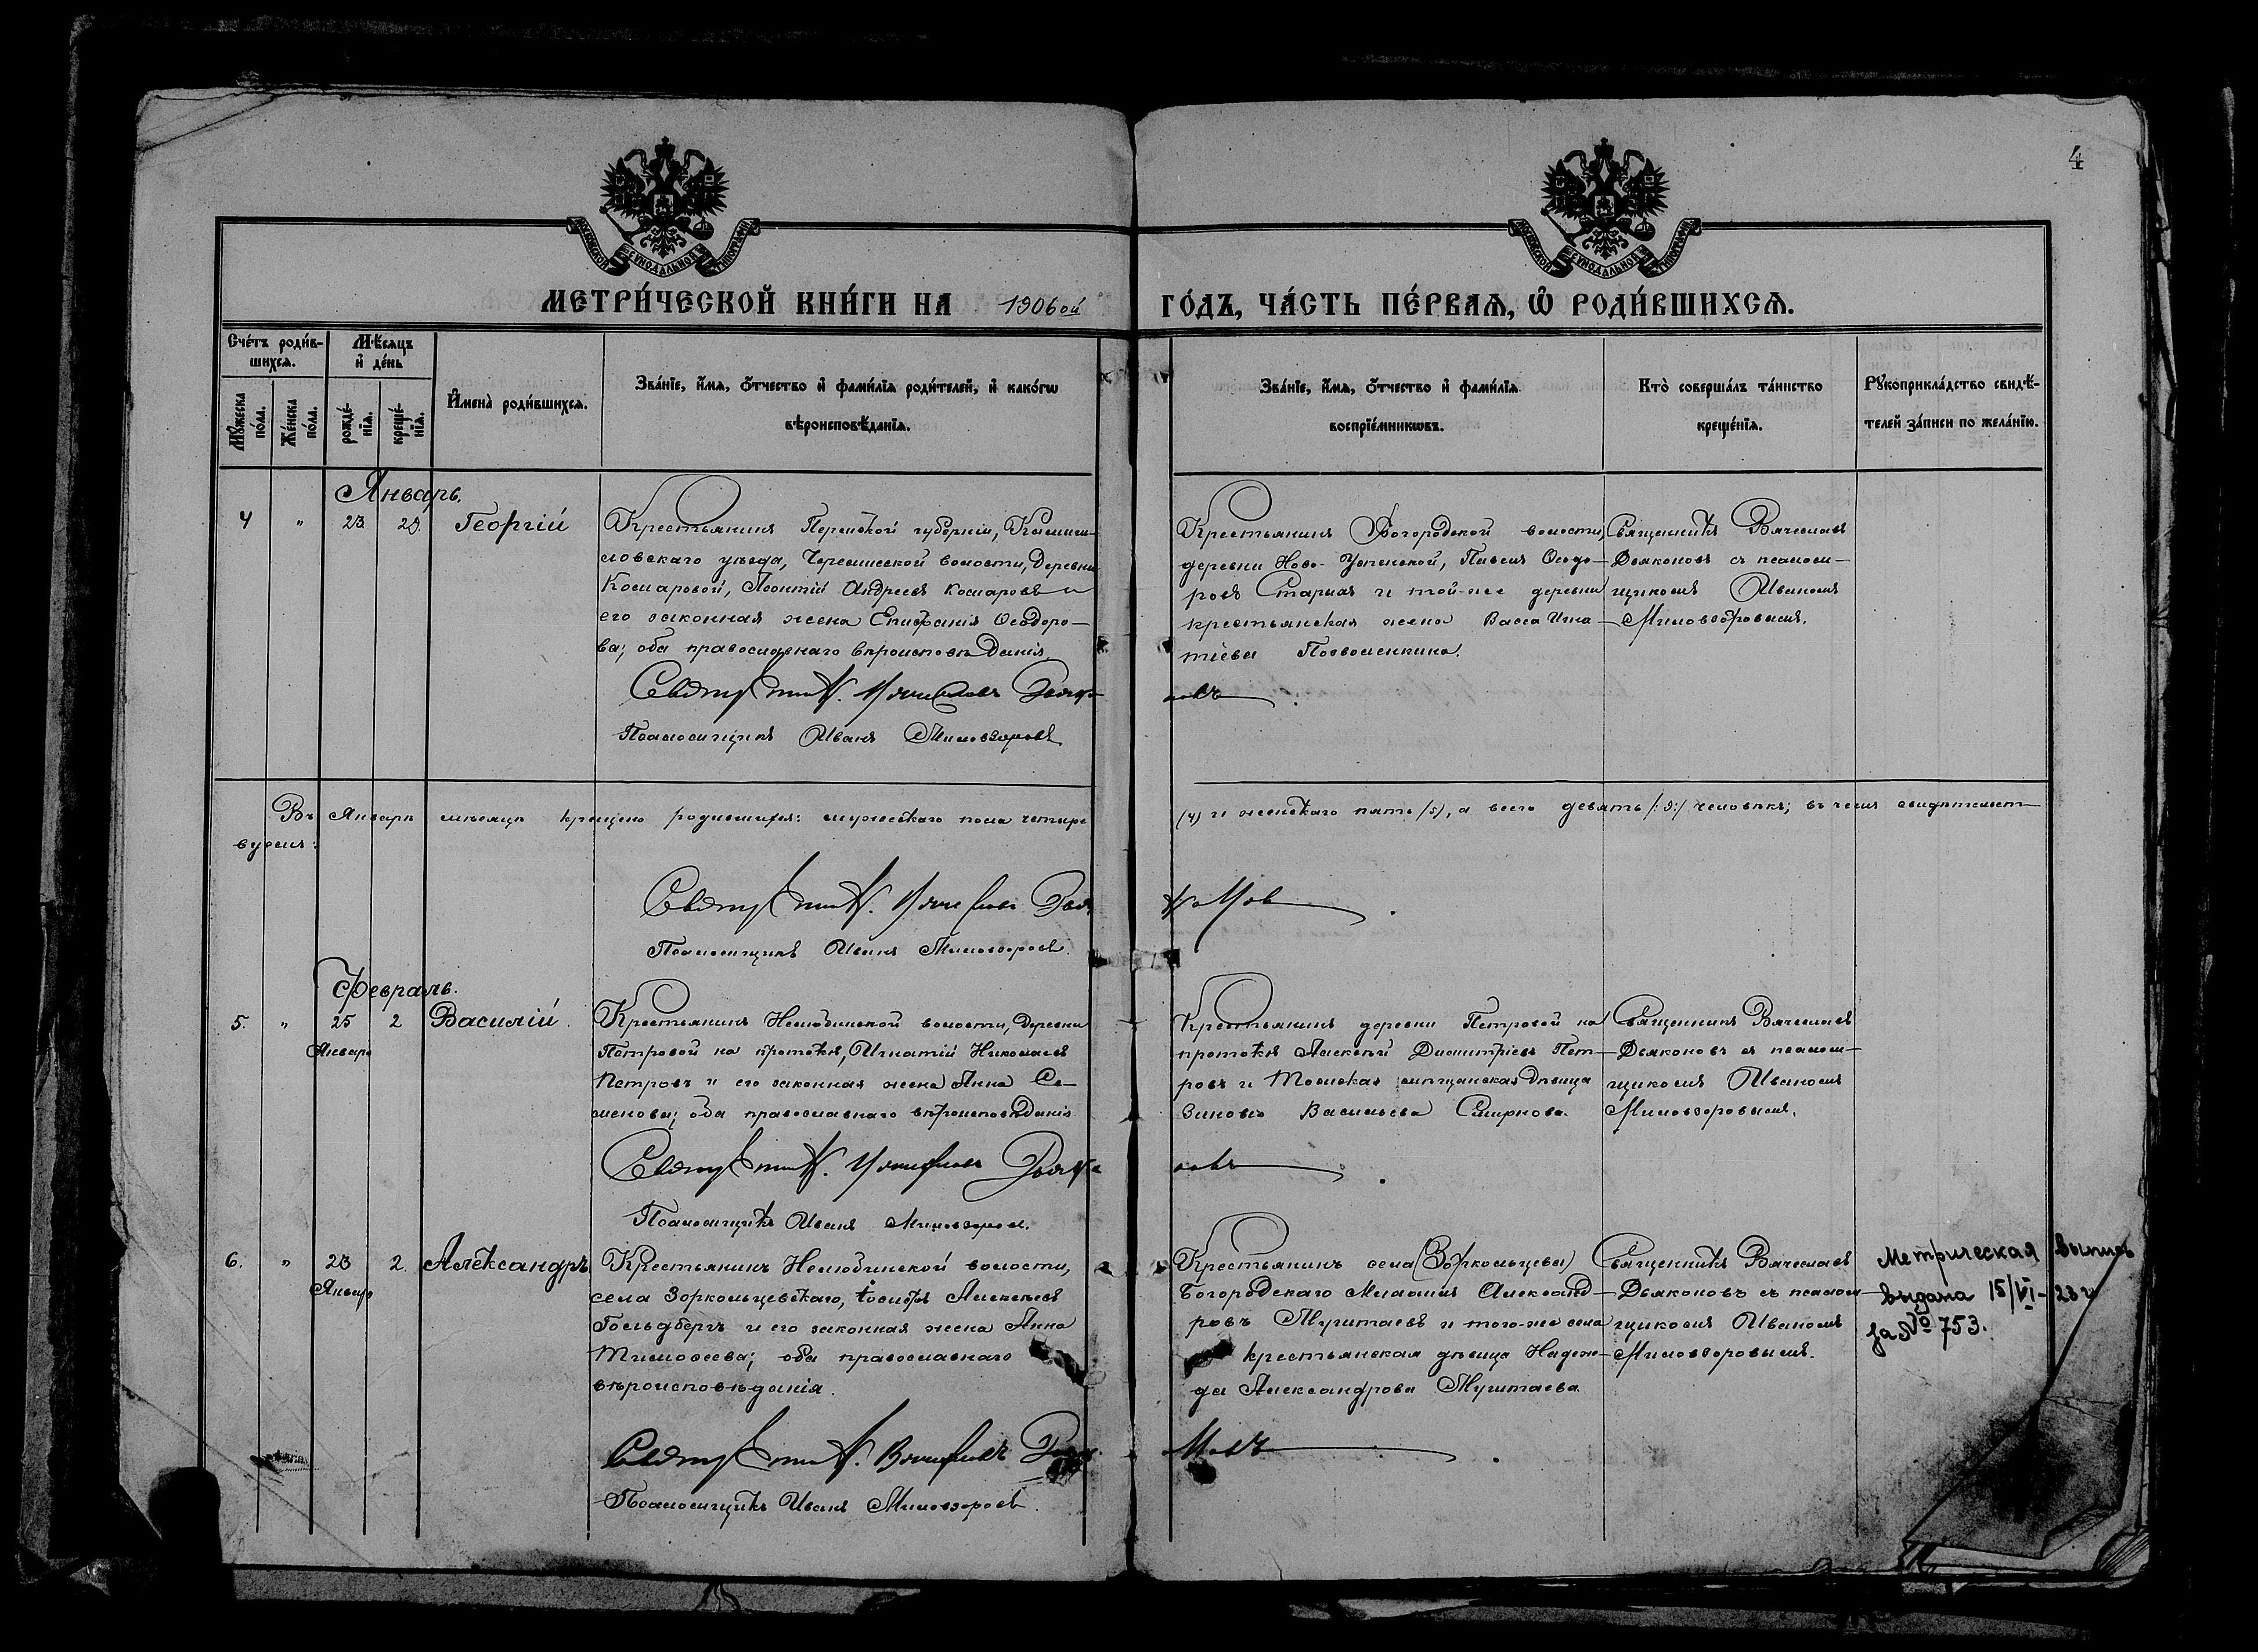 4
МОСКОВСКОЙ СѴНОДАЛЬНОЙ ТИПОГРАФІИ
МОСКОВСКОЙ СѴНОДАЛЬНОЙ ТИПОГРАФІИ
МЕТРИ́ЧЕСКОЙ КНИ́ГИ НА 1906ой ГО́ДЪ, ЧА́СТЬ ПЕ́РВАѦ, Ѡ РОДИ́ВШИХСѦ.
Счéтъ роди́в-
шихсѧ.
Мꙋжеска
по́ла.
Же́нска
по́ла.
Мѣ́сѧцъ
и҆ де́нь
рожде́-
нїѧ.
креще́-
нїѧ.
И҆мена̀ роди́вшихсѧ.
Зва́нїе, и҆́мѧ, ѻ҆́тчество и҆ фами́лїѧ роди́телей, и҆ како́гѡ
вѣроисповѣ́данїѧ.
Зва́нїе, и҆́мѧ, ѻ҆́тчество и҆ фами́лїѧ
воспрїе́мникѡвъ.
Кто̀ соверша́лъ та́инство
креще́нїѧ.
Рꙋкоприкла́дство свидѣ́-
телей за́писи по жела́нїю.
Январь.
4 " 23 29 Георгій
Крестьянинъ Пермской губерніи, Камыш-
ловскаго уѣзда, волости, деревни
Комаровой, Леонтій Андреевъ Комаровъ и
его законная жена Епифанія Ѳеодоро-
ва; оба православнаго вѣроисповѣданія.
Крестьянинъ Богородской волости,
деревни Ново-Успенской, Павелъ Ѳеодо-
ровъ и той-же деревни
крестьянская жена Васса Игна-
тіева
Священникъ Вячеславъ
Дьяконовъ съ псалом-
щикомъ Иваномъ
Миловзоровымъ.
Священник. Вячеславъ Дьяконовъ.
Псаломщикъ Иванъ Миловзоровъ
Въ Январѣ мѣсяцѣ крещено родившихся: мужескаго пола четыре (4) и женскаго пять (5), а всего девять /:9:/ человѣкъ; въ чемъ свидѣтельст-
вуемъ:
Священник. Вячеслав Дьяконов.
Псаломщикъ Иванъ Миловзоровъ.
Февраль.
5. " 25 2 Василій.
Январ
Крестьянинъ Нелюбинской волости, деревни
Петровой на протокѣ, Игнатій Николаевъ
Петровъ и его законная жена Анна Се-
менова; оба православнаго вѣроисповѣданія
Крестьянинъ деревни Петровой на
протокѣ Алексѣй Димитріевъ Пет-
ровъ и Томская мѣщанская дѣвица
Зиновія Васильева Смирнова.
Священникъ Вячеславъ
Дьяконовъ съ псалом-
щикомъ Иваномъ
Миловзоровымъ.
Священник. Вячеславъ Дьяконовъ.
Псаломщикъ Иванъ Миловзоровъ.
6. " 23 2. Александръ
Январ
Крестьянинъ Нелюбинской волости,
села Зоркольцевскаго, Іосифъ Алексѣевъ
Гольдбергъ и его законная жена Анна
Тимоѳеева; оба православнаго
вѣроисповѣданія.
Крестьянинъ села (Зоркольцева)
Богородскаго Михаилъ Александ-
ровъ Муштаевъ и того-же села
крестьянская дѣвица Надеж-
да Александрова Муштаева.
Священникъ Вячеславъ
Дьяконовъ съ псалом-
щикомъ Иваномъ
Миловзоровымъ.
Метрическая выпись
выдана 15/VI-23 г
за № 753.
Священник. Вячеславъ Дьяконовъ.
Псаломщикъ Иванъ Миловзоровъ.